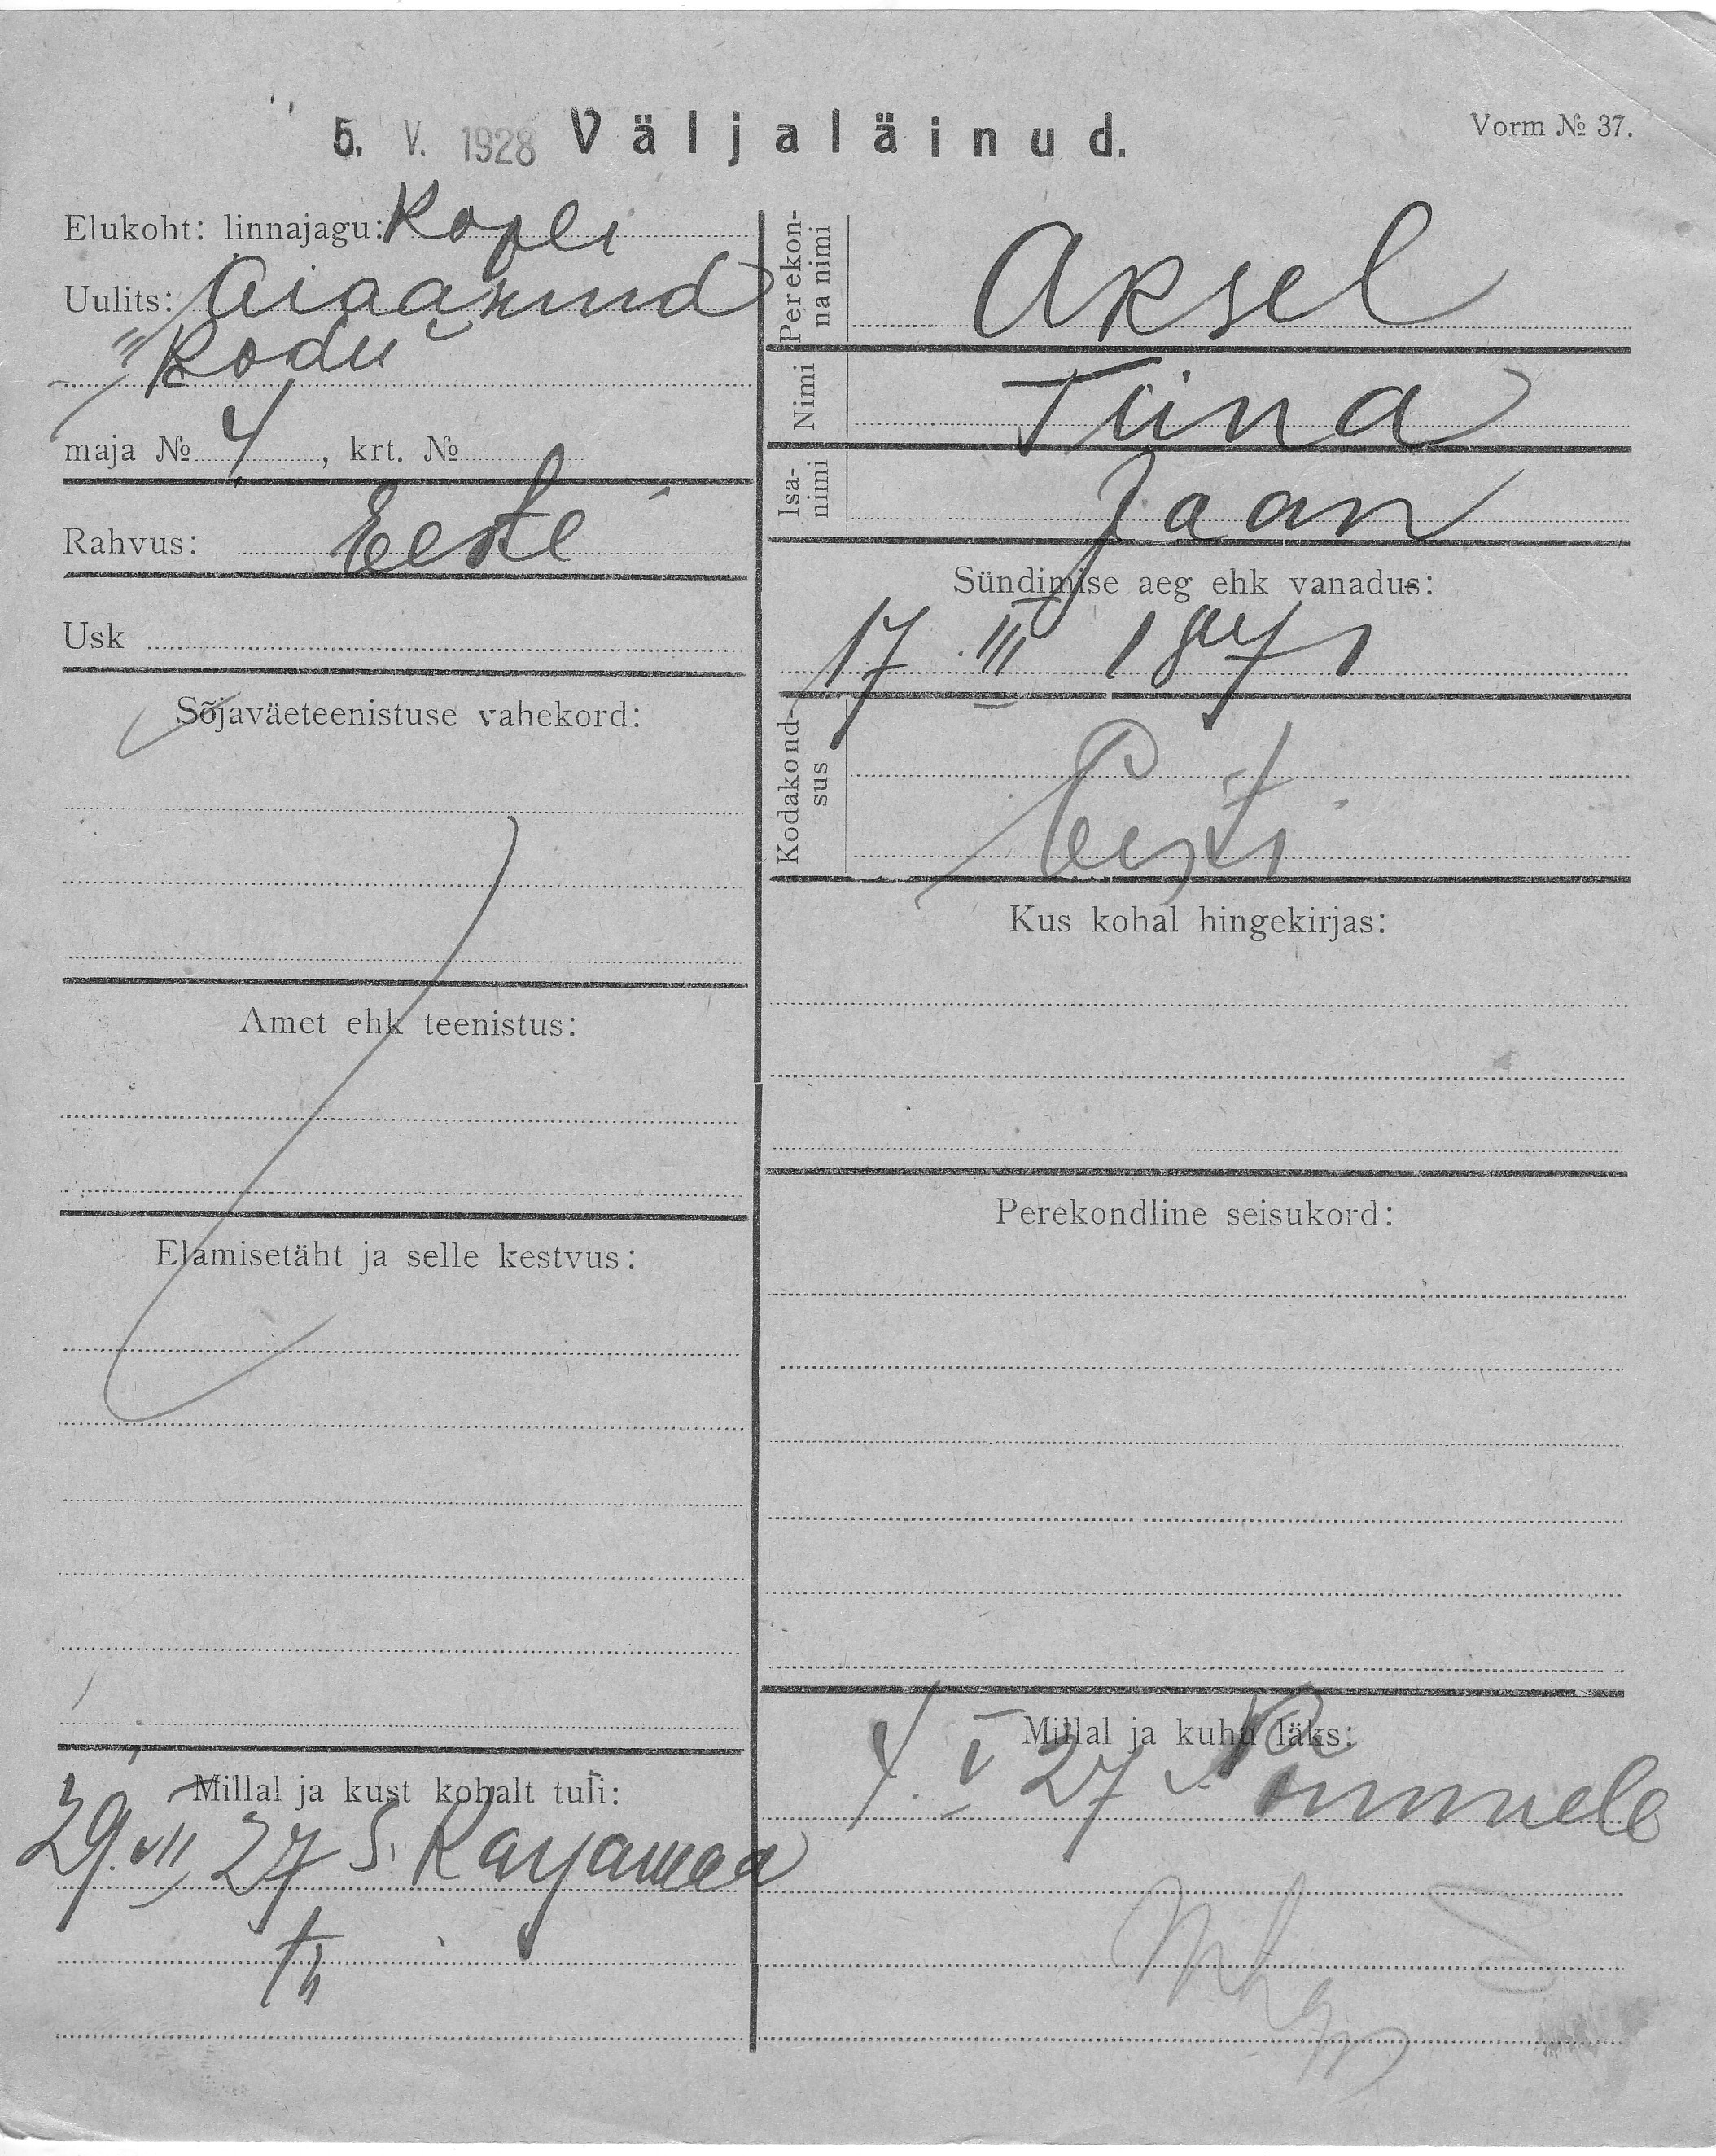 5. V. 1928 Väljaläinud.
Vorm № 37.
Elukoht: linnajagu: Kopli
Uulits:
Kodu
maja № 4, krt. №
Rahvus: Eesti
Usk
Sõjaväeteenistuse vahekord:
Amet ehk teenistus:
Elamisetäht ja selle kestvus:
Millal ja kust kohalt tuli:
29. VII 27 S. Karjamaa
Perekon-
na nimi
Aksel
Nimi
Tiina
Isa-
nimi
Jaan
Sündimise aeg ehk vanadus:
17 III 1871
Kodakond-
sus
Eesti
Kus kohal hingekirjas:
Perekondline seisukord:
Millal ja kuhu läks:
4. V 27 Nõmmele